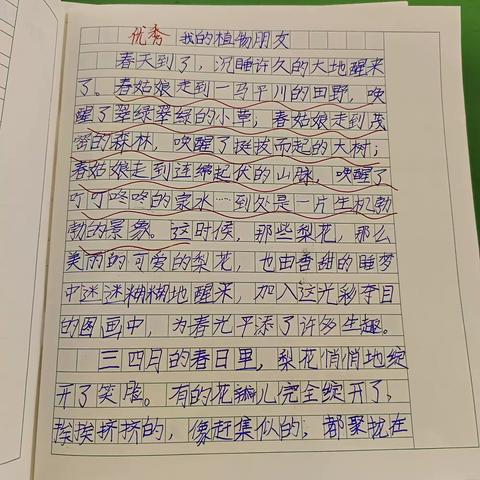 优秀 我的植物朋友
春天到了，沉睡许久的大地醒来
了。春姑娘走到一马平川的田野，唤
醒了翠绿翠绿的小草；春姑娘走到茂
密的森林，唤醒了挺拔而起的大树；
春姑娘走到连绵起伏的山脉，唤醒了
叮叮咚咚的泉水……到处是一片生机勃
勃的景象。这时候，那些梨花，那么
美丽的可爱的梨花，也由香甜的睡梦
中迷迷糊糊地醒来，加入这光彩夺目
的图画中，为春光平添了许多生趣。
三四月的春日里，梨花悄悄地绽
开了笑脸。有的花瓣儿完全绽开了，
挨挨挤挤的，像赶集似的；都聚拢在